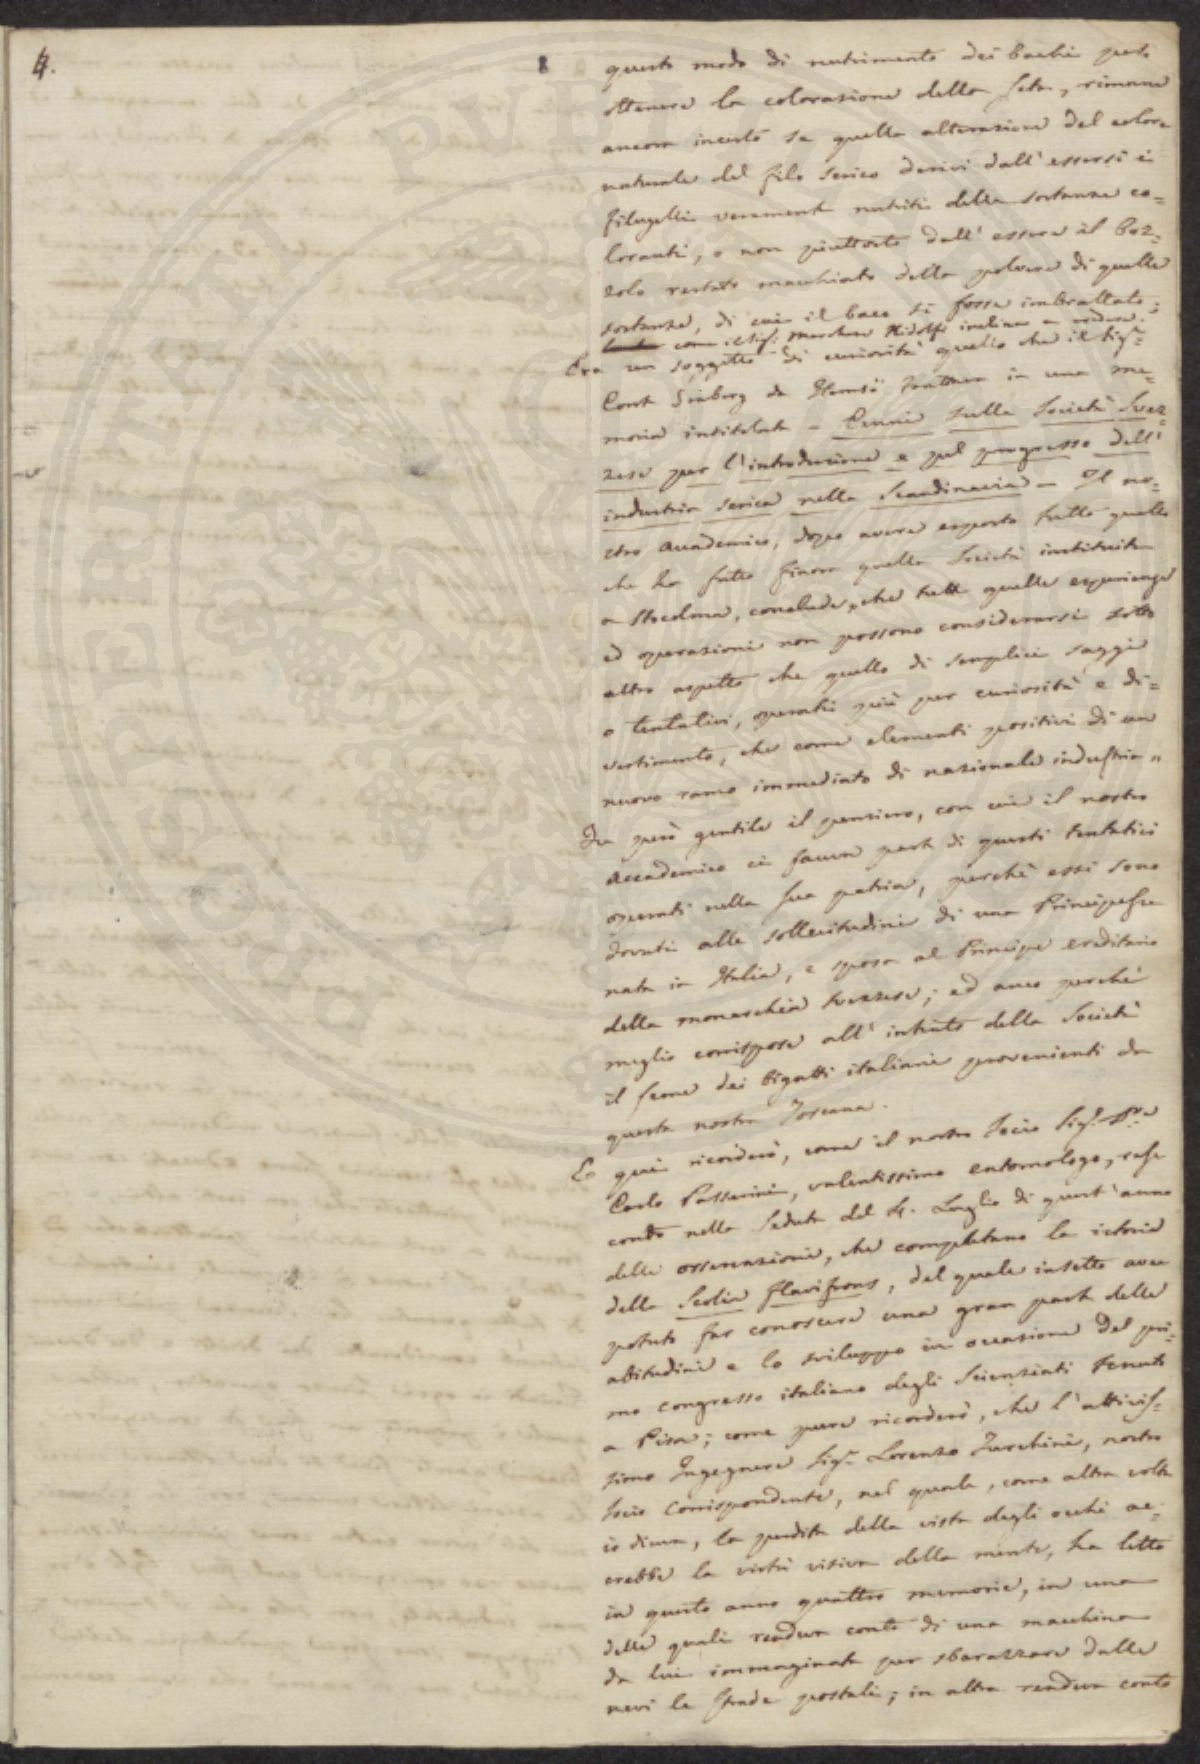 4.
8
questo modo di nutrimento dei bachi potè
ottenere la colorazione della seta, rimane
ancora incerto se quella alterazione del colore
naturale del filo serico derivi dall'essersi i
filugelli veramente nutriti delle sostanze co=
loranti, o non piuttosto dall'essere il boz=
zolo restato macchiato della polvere di quelle
sostanze, di cui il baco si fosse imbrattato;
come il Sig: Marchese Ridolfi inclina a credere.
Era un soggetto di curiosità quello che il Sigr:
Conte Gråberg da Hemsö trattava in una me=
moria intitolata - Cenni sulla Società Sved=
zese per l'introduzione e pel progresso dell'
industria serica nella Scandinavia - Il no=
stro Accademico, dopo avere esposto tutto quello
che ha fatto finora quella Società instituita
a Stocolma, conclude, "che tutte quelle esperienze
ed operazioni non possono considerarsi sotto
altro aspetto che quello di semplici saggi
o tentativi, operati più per curiosità e di=
vertimento, che come elementi positivi di un
nuovo ramo immediato di nazionale industria"
Fu però gentile il pensiero, con cui il nostro
Accademico ci faceva parte di questi tentativi
operati nella sua patria, perchè essi sono
dovuti alle sollecitudini di una Principessa
nata in Italia, e sposa al Principe ereditario
della monarchia svezzese; ed anco perchè
meglio corrispose all'intento della Società
il seme dei bigatti italiani provenienti da
questa nostra Toscana.
E qui ricorderò, come il nostro Socio Sigr. Dre
Carlo Passerini, valentissimo entomologo, rese
conto nella Seduta del 4. Luglio di quest'anno
delle osservazioni, che completano la istoria
della Scolia flavifrons, del quale insetto avea
potuto far conoscere una gran parte delle
abitudini e lo sviluppo in occasione del pri=
mo congresso italiano degli Scienziati tenuto
a Pisa; come pure ricorderò, che l'attivis=
simo Ingegnere Sigr. Lorenzo Turchini, nostro
Socio Corrispondente, nel quale, come altra volta
io diceva, la perdita della vista degli occhi ac=
crebbe la virtù visiva della mente, ha letto
in questo anno quattro memorie, in una
delle quali rendeva conto di una macchina
da lui immaginata per sbarazzare dalle
nevi le strade postali; in altra rendeva conto